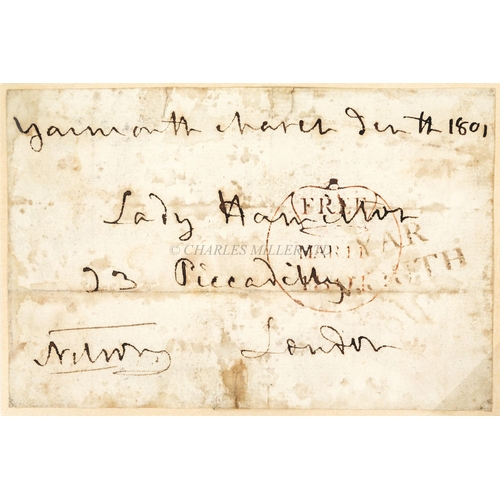 Yarmouth March Tenth 1801
Lady Hamilton
FREE
MAR 11
YAR
© CHARLES MILLER LTD
23 Piccadilly
Nelson
London